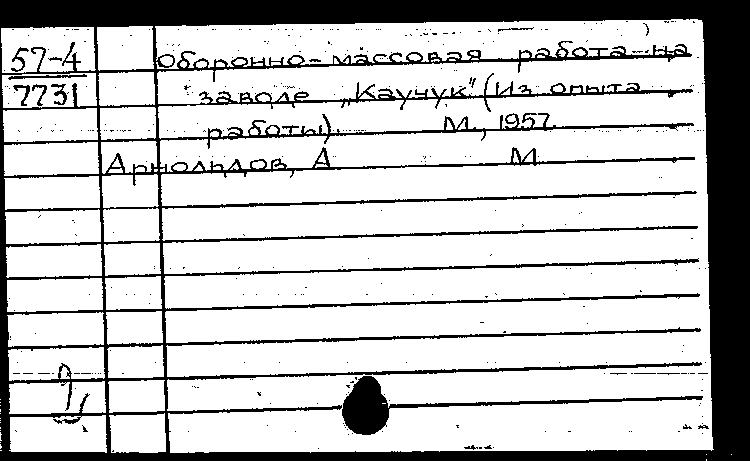 57-4
7731
Оборонно-массовая работа на
заводе „Каучук" (Из опыта
работы). М., 1957.
Арнольдов, А М